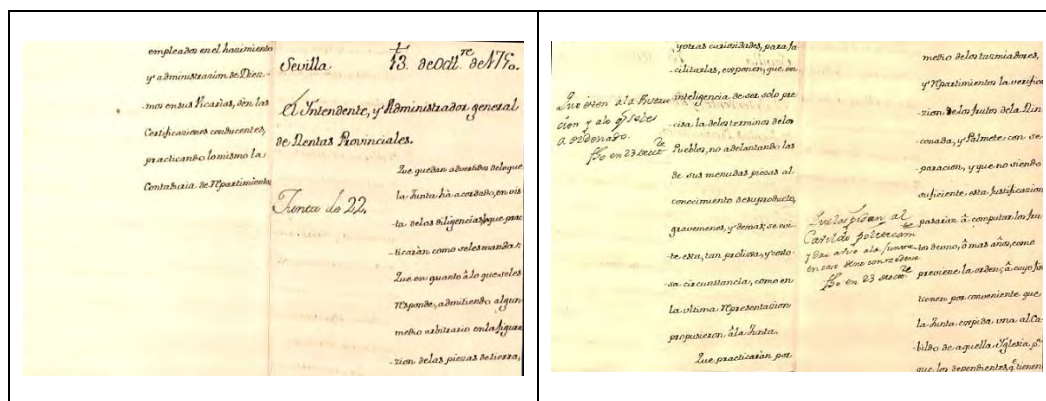 empleados en el hacimiento
y administracion de Diez-
mos en sus Vicarias, den las
Certificaciones conducentes,
practicando lo mismo la
Contaduria de Repartimiento
Sevilla 13. de Oct.re de 1750.
El Yntendente, y Administrador general
de Rentas Provinciales.
Que quedan advertidos de lo que
la Junta hà acordado, en vis
-ta de las diligencias, que prac
-ticaràn como se les manda:
Junta de 22.
Que en quanto à lo que se les
responde, admitiendo algun
medio arbitrario en la figura
-zion de las piezas de tierra,
y otras curiosidades, para fa
-cilitarlas, exponen, que en
inteligencia de ser solo pre
-cisa la de los terminos de los
Pueblos, no adelantando las
de sus menudas piezas al
conocimiento de su producto,
gravamenes, y demas; se evi
-te esta, tan prolixa, y costo
-sa circunstancia, como en
la ultima representacion
propusieron à la Junta.
Que practicaràn por
Que esten a la
y a lo q.e se les
a ordenado.
fho en 23
medio de los tazmiadores,
y repartimientos la verifica
-zion de los frutos de la Rin
-conada, y Palmete con se
-paracion, y que no siendo
suficiente, esta justificazion
pasaràn à computar los fru
-tos de uno, ò mas años, como
previene la orden; à cuyo fin
tienen por conveniente que
la Junta expida una al Ca-
-bildo de aquella Yglesia, p.a
que los dependientes, q.e tienen
Que los pidan al
Cavildo
y dar aviso a la Junta
en caso de no
fho en 23